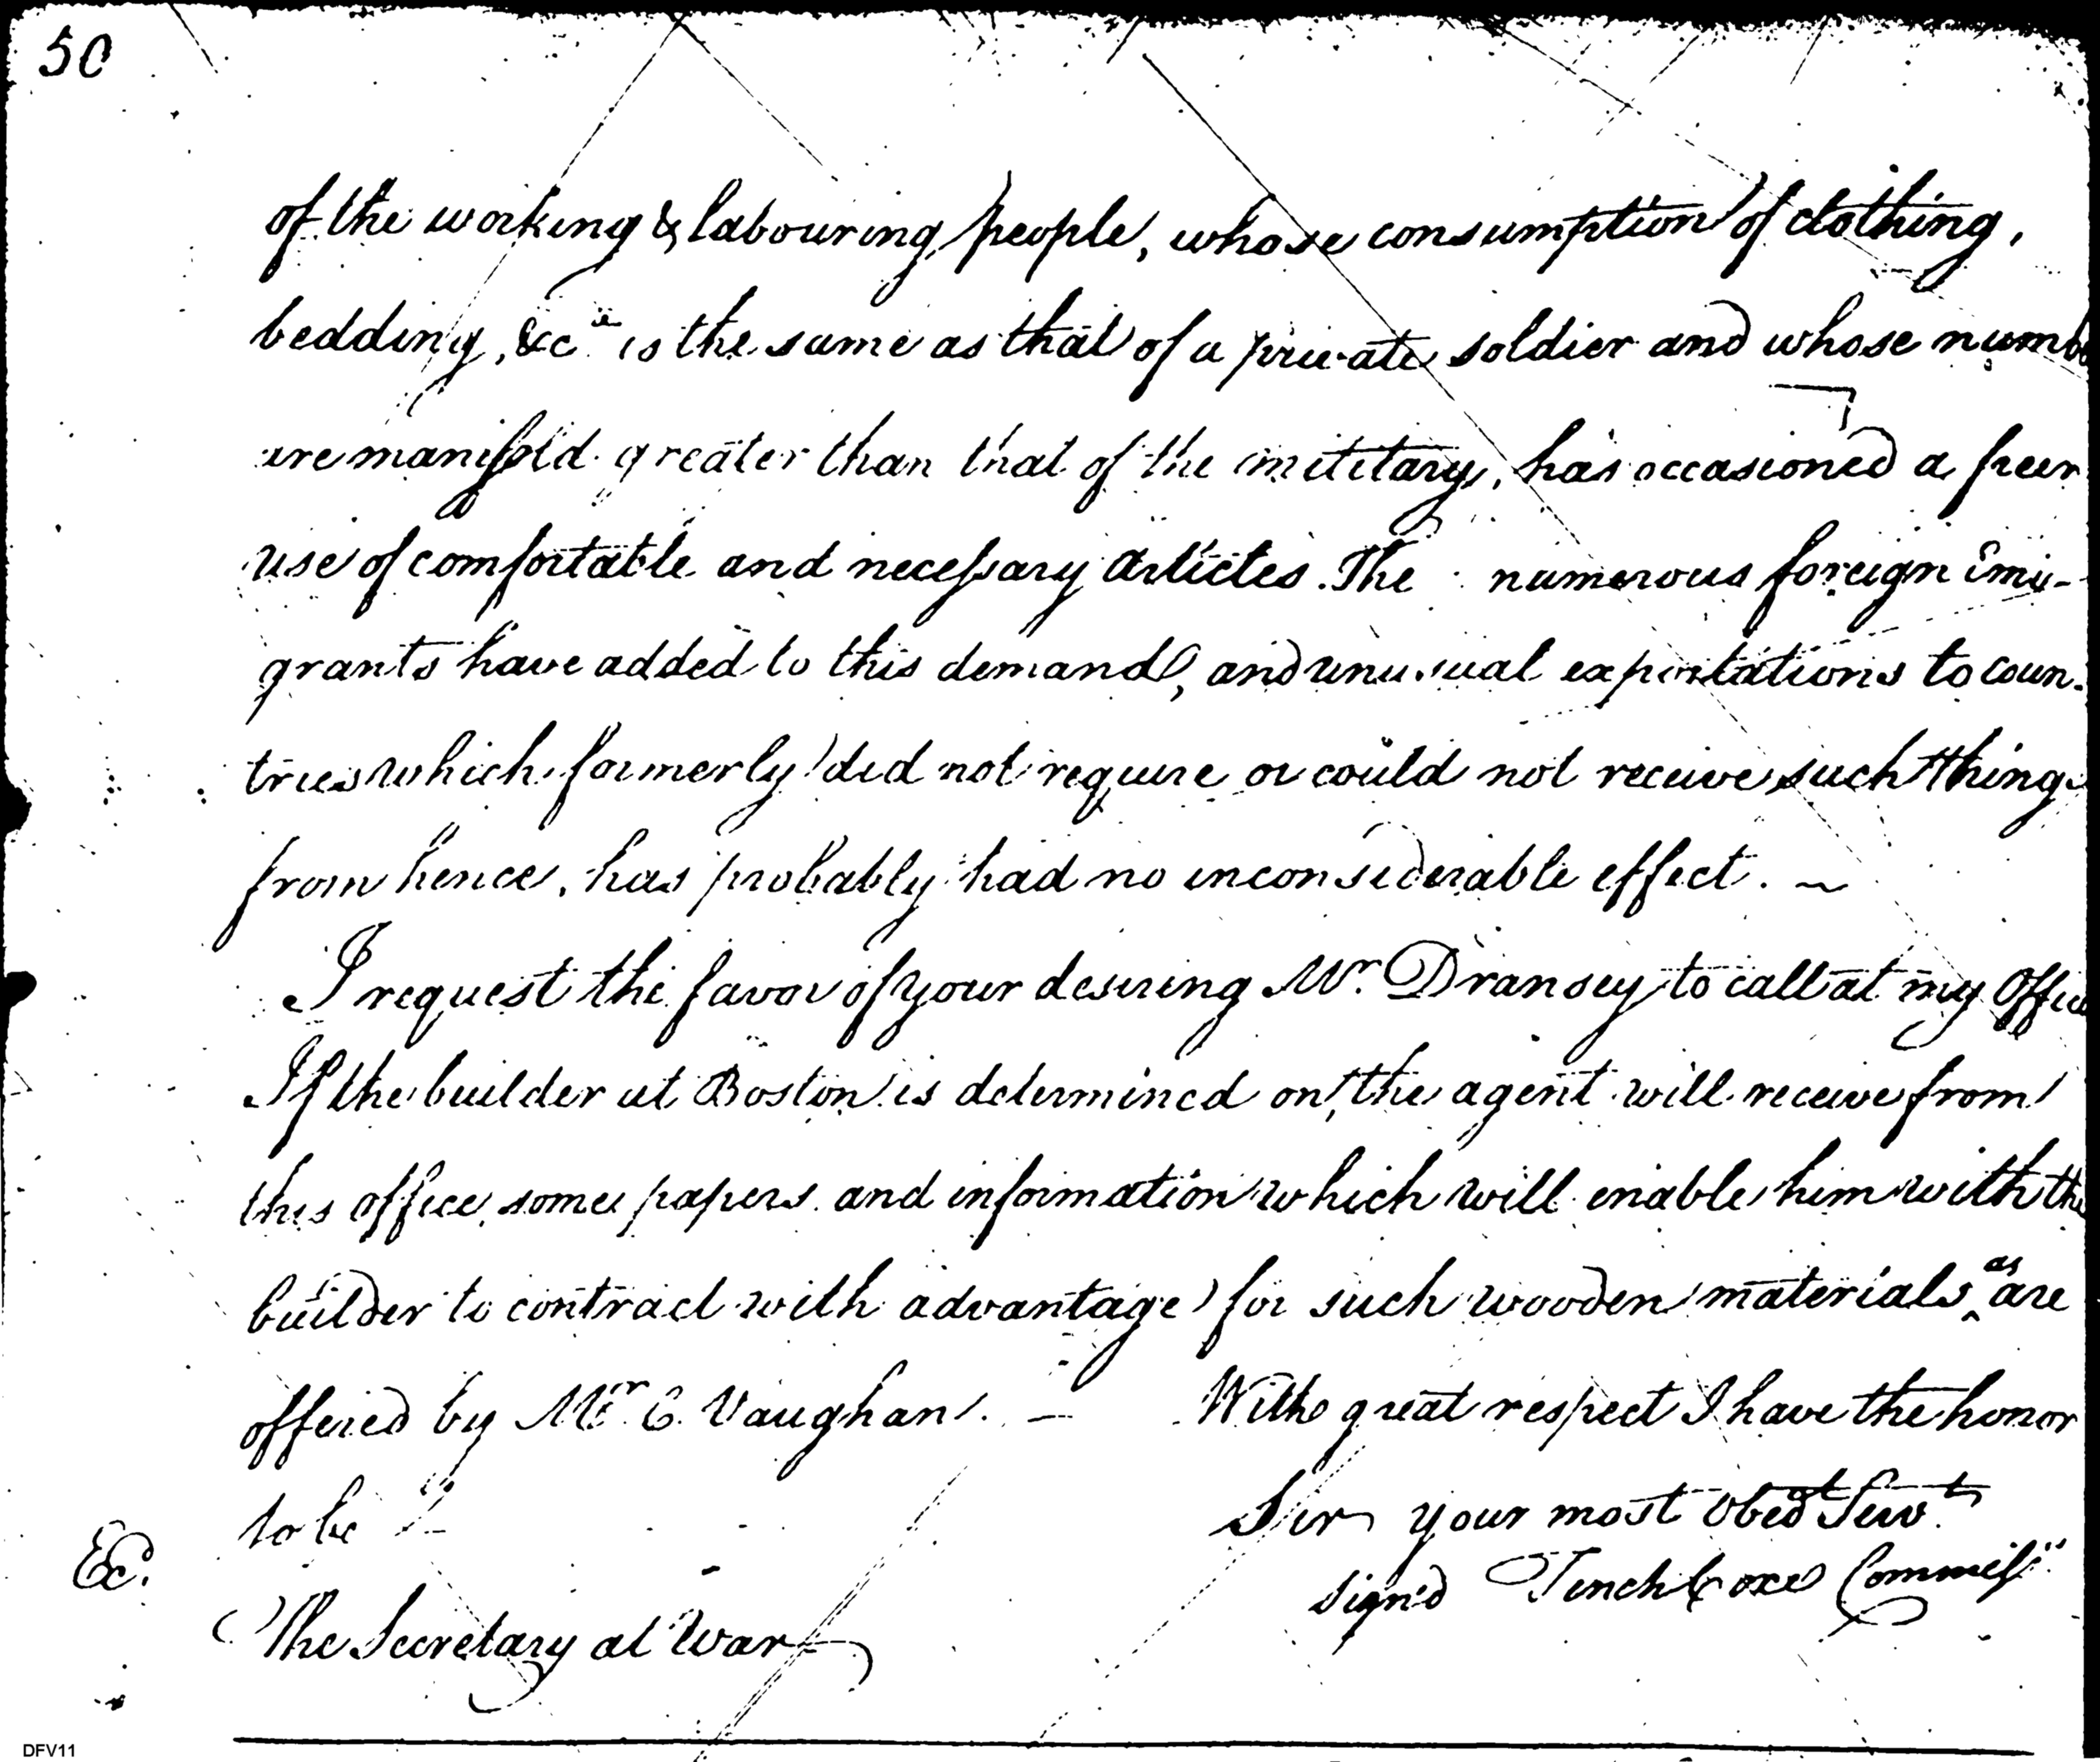 50
of the working & labouring people, whose consumption of clothing,
bedding, &ca is the same as that of a private soldier and whose numb
are manifold greater than that of the military, has occasioned a freer
use of comfortable and necessary articles. The numerous foreign Emi-
grants have added to this demand, and unusual exportations to coun-
tries which formerly did not require or could not receive such things
from hence, has probably had no inconsiderable effect. ~
I request the favor of your desiring Mr. Dransey to call at my Office
If the builder at Boston is determined on, the agent will receive from
this office, some papers and information which will enable him with the
builder to contract with advantage for such wooden materials as are
offered by Mr. C. Vaughan. — With great respect I have the honor
to be Sir your most obedt Servt.
Ex. signd Tench Coxe Commissr.
The Secretary at War
DFV11